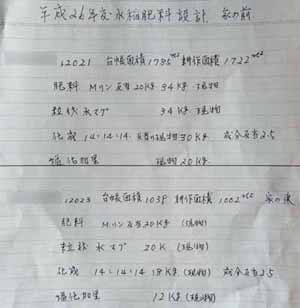 平成26年度水稲肥料設計 家の前
12021 台帳面積1785m2 耕作面積1722m2
肥料 Mリン 反当20Kg 34Kg 現物
粒状水マグ 34Kg 現物
化成 14-14-14 反当り現物30Kg 成分反当2.5
塩化加里 現物20Kg
12023 台帳面積1039 耕作面積1002m2 家の東
肥料 Mリン 反当20Kg (現物)
粒状 水マグ 20K (現物)
化成 14-14-14 18Kg (現物) 成分反当2.5
塩化加里 12Kg (現物)